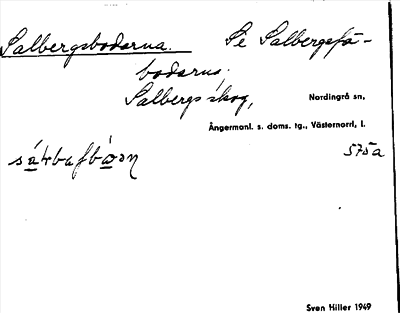 Salbergsbodarna. Se Salbergsfä-
bodarna,
Salbergs skog, Nordingrå sn,
Ångermanl. s. doms. tg., Västernorrl. l.
575a
Sven Hiller 1949